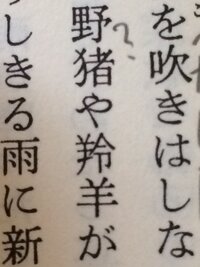 を吹きはしな
野猪や羚羊が
しきる雨に新